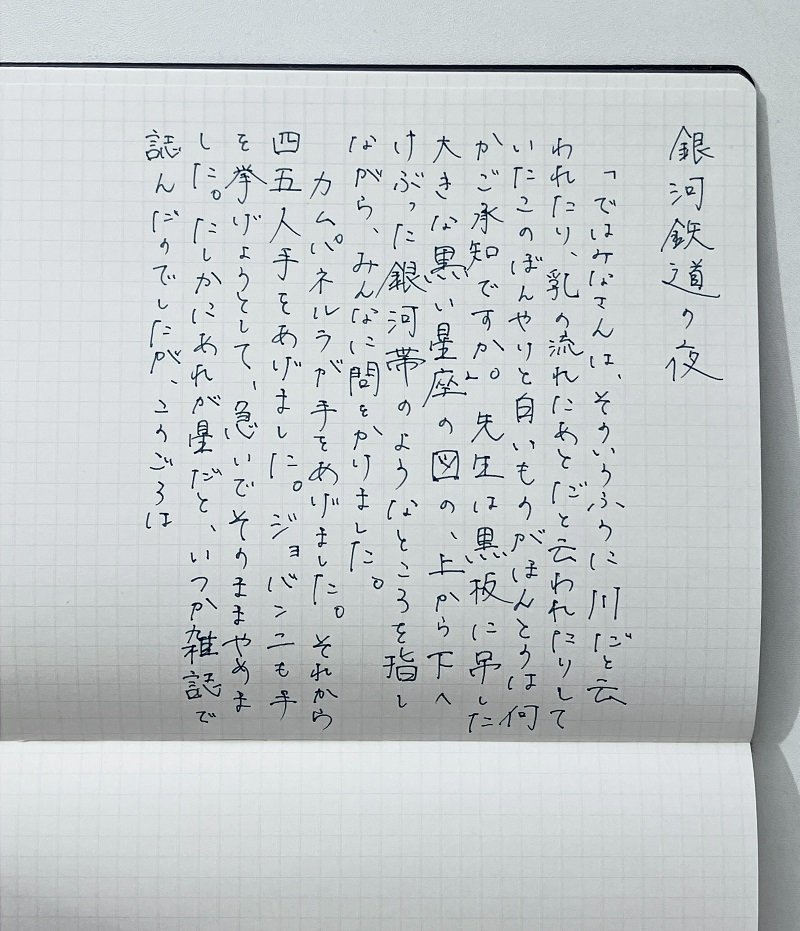 銀河鉄道の夜
「ではみなさんは、そういうふうに川だと云
われたり、乳の流れたあとだと云われたりして
いたこのぼんやりと白いものがほんとうは何
かご承知ですか。」先生は黒板に吊した
大きな黒い星座の図の、上から下へ
けぶった銀河帯のようなところを指し
ながら、みんなに問をかけました。
カムパネルラが手をあげました。それから
四五人手をあげました。ジョバンニも手
を挙げようとして、急いでそのままやめま
した。たしかにあれが星だと、いつか雑誌で
誌んだのでしたが、このごろは